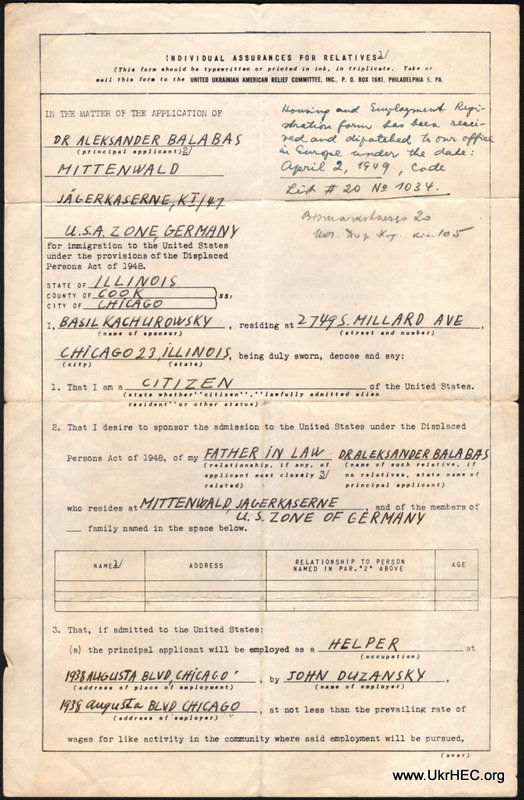 INDIVIDUAL ASSURANCES FOR RELATIVES 1/
(This form should be typewritten or printed in ink, in triplicate. Take or
mail this form to the UNITED UKRAINIAN AMERICAN RELIEF COMMITTEE, INC., P. O. BOX 1661, PHILADELPHIA 5, PA.
IN THE MATTER OF THE APPLICATION OF
DR ALEKSANDER BALABAS
(principal applicant) 2/
MITTENWALD
JÄGERKASERNE, KI/47
U.S.A. ZONE GERMANY
for immigration to the United States
under the provisions of the Displaced
Persons Act of 1948.
Housing and Employment Regi-
stration form has been recei-
ved and dispatched to our office
in Europe under the date:
April 2, 1949, Code
List # 20 No 1034.
20
105
STATE OF ILLINOIS
COUNTY OF COOK ss:
CITY OF CHICAGO
I, BASIL KACHUROWSKY, residing at 2749 S. MILLARD AVE,
(name of sponsor) (street and number)
CHICAGO 23, ILLINOIS, being duly sworn, depose and say:
(city) (state)
1. That I am a CITIZEN of the United States.
(state whether "citizen", "lawfully admitted alien
resident" or other status)
2. That I desire to sponsor the admission to the United States under the Displaced
Persons Act of 1948, of my FATHER IN LAW DR ALEKSANDER BALABAS
(relationship, if any, of applicant most closely 3/ related) (name of such relative, if no relatives, state name of principal applicant)
who resides at MITTENWALD, JAGERKASERNE, and of the members of
U.S. ZONE OF GERMANY
___ family named in the space below.
NAME 2/ ADDRESS RELATIONSHIP TO PERSON NAMED IN PAR. "2" ABOVE AGE
3. That, if admitted to the United States:
(a) the principal applicant will be employed as a HELPER at
(occupation)
1938 AUGUSTA BLVD, CHICAGO, by JOHN DUZANSKY,
(address of place of employment) (name of employer)
1939 Augusta BLVD CHICAGO, at not less than the prevailing rate of
(address of employer)
wages for like activity in the community where said employment will be pursued,
(over)
www.UkrHEC.org